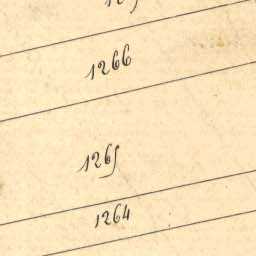 1266
1265
1264